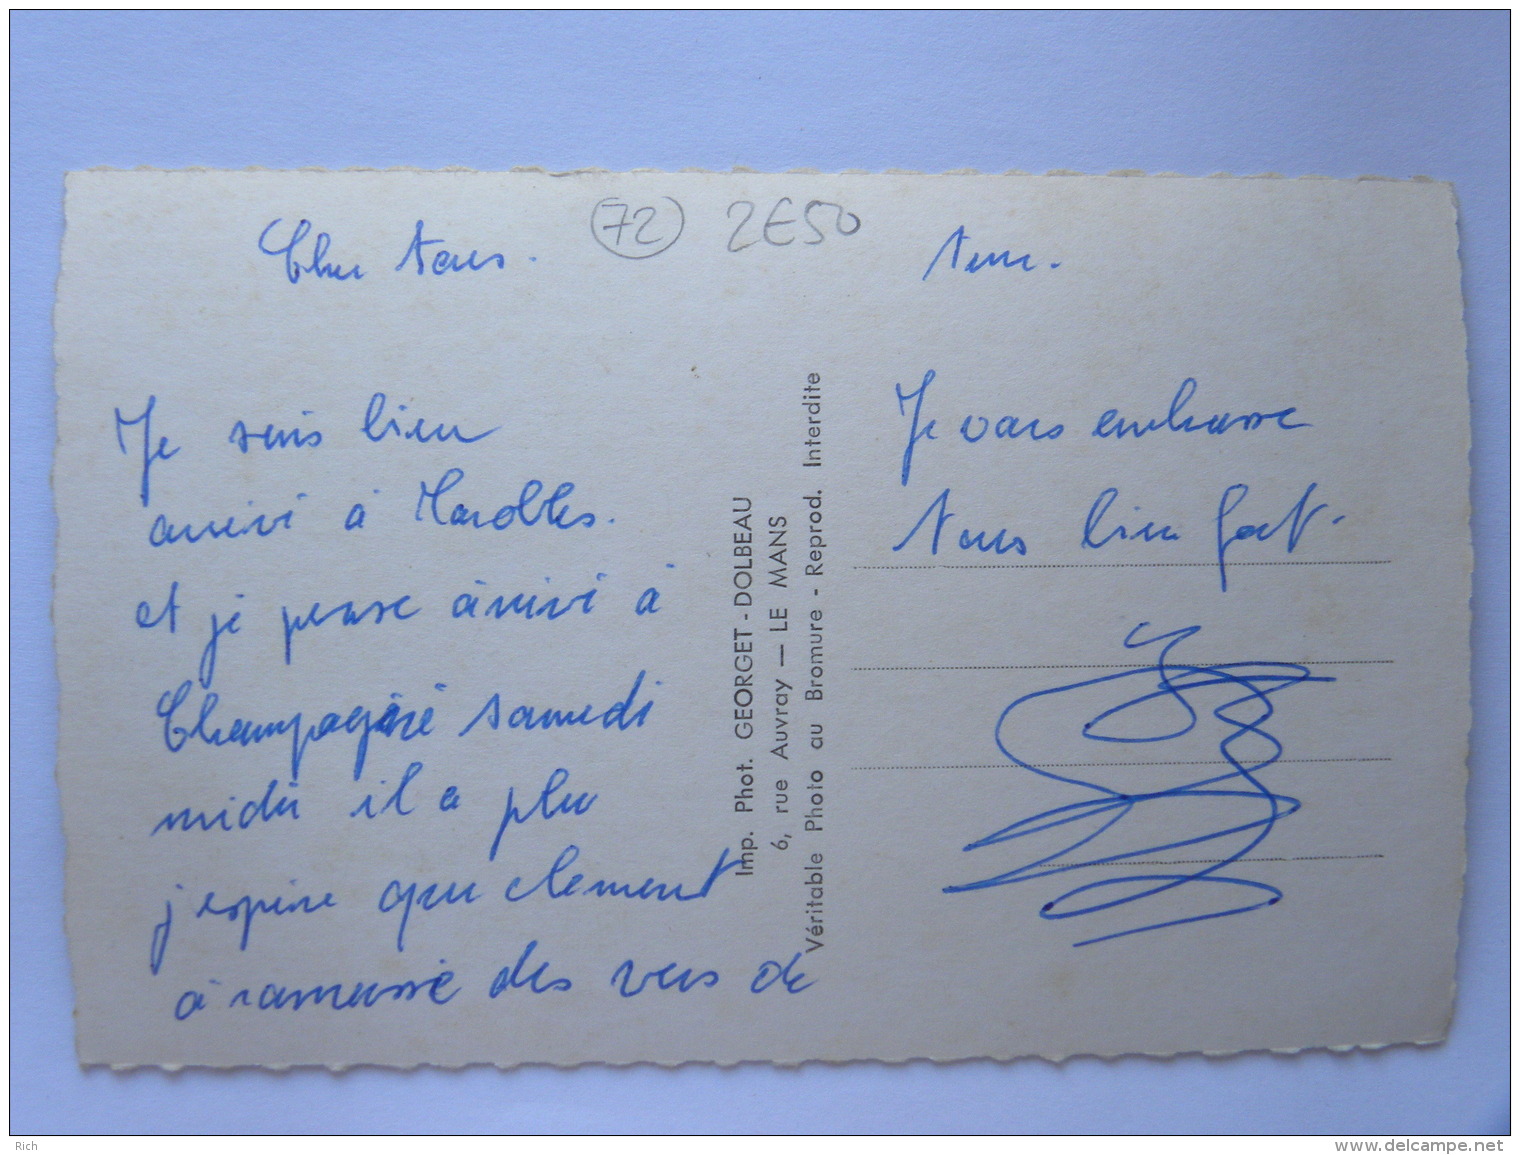 Cher tous.
72 2E50
Je suis bien
arrivé à Marolles.
et je pense arrivé à
Champagné samedi
midi il a plu
j'espère que clement
à ramassé des vers de
terre.
Je vous embrasse
tous bien fort.
Imp. Phot. GEORGET - DOLBEAU
6, rue Auvray — LE MANS
Véritable Photo au Bromure - Reprod. Interdite
Rich
www.delcampe.net